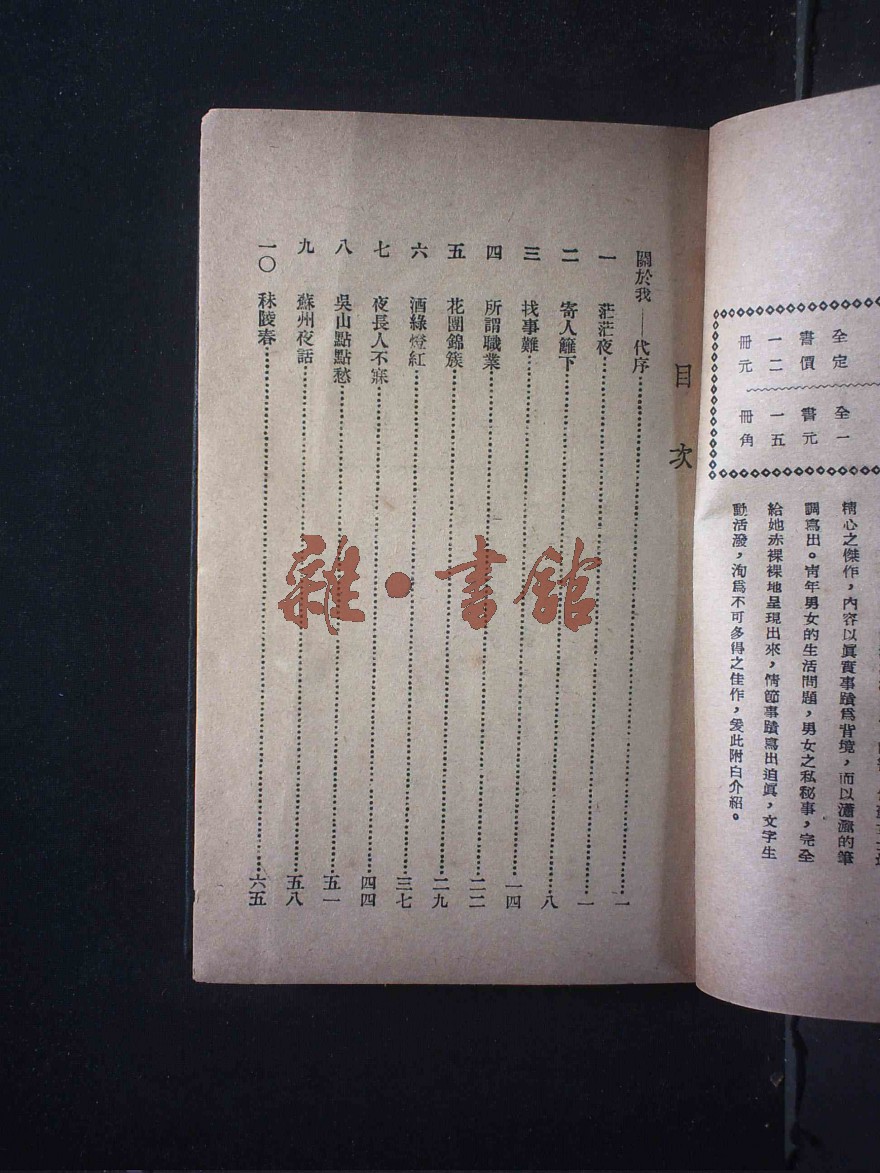 全書一冊
定價二元
全書一冊
一元五角
精心之傑作，內容以眞實事蹟爲背境，而以瀟灑的筆
調寫出。靑年男女的生活問題，男女之私秘事，完全
給她赤裸裸地呈現出來，情節事蹟寫出迫眞，文字生
動活潑，洵爲不可多得之佳作，爰此附白介紹。
目次
關於我——代序……一
一 茫茫夜……一
二 寄人籬下……八
三 找事難……一四
四 所謂職業……二二
五 花團錦簇……二九
六 酒綠燈紅……三七
七 夜長人不寐……四四
八 吳山點點愁……五一
九 蘇州夜話……五八
一〇 秣陵春……六五
雜·書館